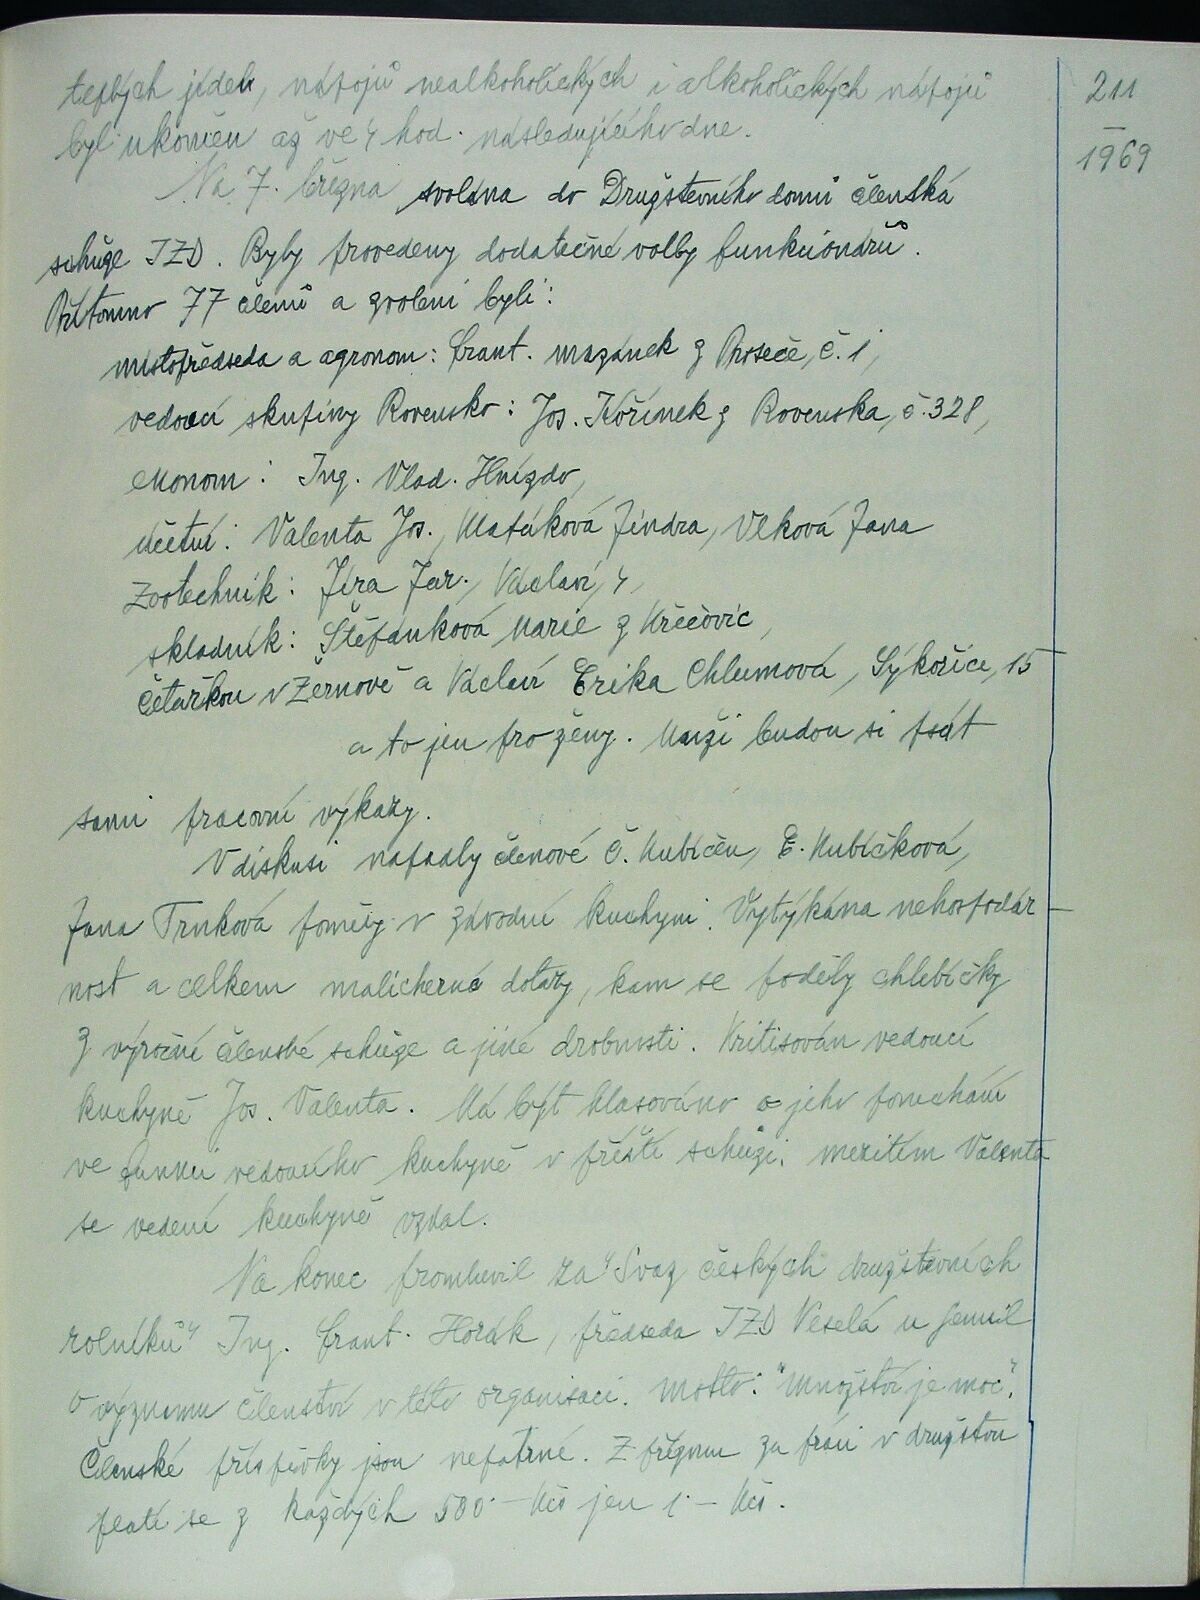 teplých jídel, nápojů nealkoholických i alkoholických nápojů
byl ukončen až ve 4 hod. následujícího dne.
Na 7. března svolána do Družstevního domů členská
schůze JZD. Byly provedeny dodatečné volby funkcionářů.
Přítomno 77 členů a zvoleni byli:
místopředseda a agronom: Frant. Mazánek z Proseče, č. 1,
vedoucí skupiny Rovensko: Jos. Kořínek z Rovenska, č. 328,
ekonom: Ing. Vlad. Hnízdo,
účetní: Valenta Jos., Matáková Jindra, Vlková Jana
Zootechnik: Jíra Jar., Václaví, 4,
skladník: Štěpánková Marie z Křečovic,
četařkou v Žernově a Václaví Erika Chlumová, Sýkořice, 15
a to jen pro ženy. Muži budou si psát
sami pracovní výkazy.
V diskusi napadly členové Č. Kubíčů, E. Kubíčková,
Jana Trnková poměry v závodní kuchyni. Vytýkána nehospodár
nost a celkem malicherné dotazy, kam se poděly chlebíčky
z výroční členské schůze a jiné drobnosti. Kritisován vedoucí
kuchyně Jos. Valenta. Má být hlasováno o jeho ponechání
ve funkci vedoucího kuchyně v příští schůzi. mezitím Valenta
se vedení kuchyně vzdal.
Na konec promluvil za "Svaz českých družstevních
rolníků" Ing. Frant. Horák, předseda JZD Veselá u Semil
o významu členství v této organisaci. Motto: "Množství je moc".
Členské příspěvky jsou nepatrné. Z příjmu za práci v družstvu
platí se z každých 500.- Kčs jen 1.- Kčs.
211
1969